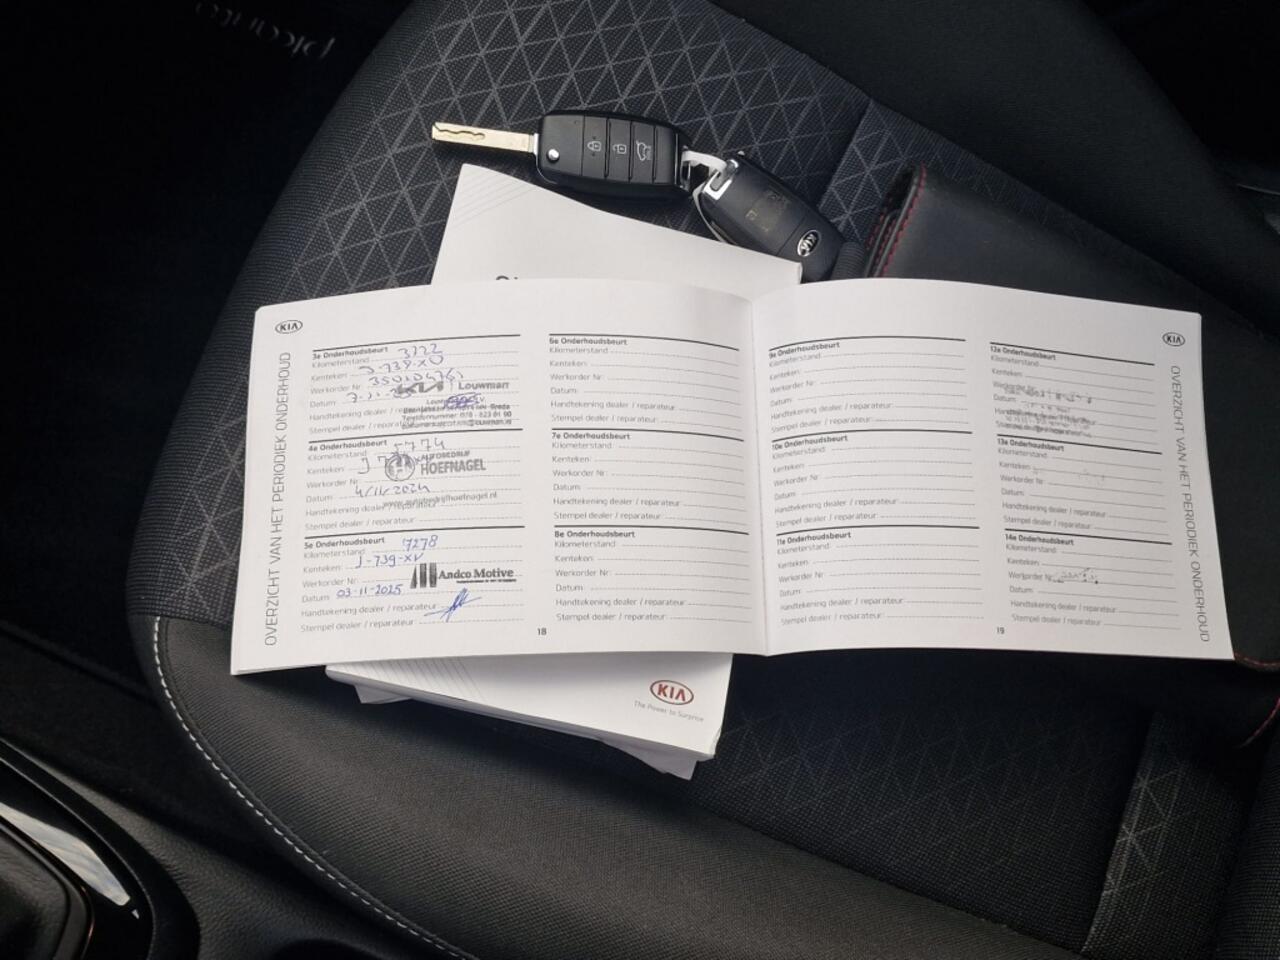 KIA
OVERZICHT VAN HET PERIODIEK ONDERHOUD
3e Onderhoudsbeurt
Kilometerstand 3722
Kenteken: J-739-XV
Werkorder Nr:
Datum:
KIA Louwman
Handtekening dealer /
Stempel dealer /
4e Onderhoudsbeurt
Kilometerstand 5774
Kenteken:
Werkorder Nr:
AUTOBEDRIJF
HOEFNAGEL
Datum 4/11/2024
www.autobedrijfhoefnagel.nl
Handtekening dealer / reparateur
Stempel dealer / reparateur:
5e Onderhoudsbeurt
Kilometerstand: 7278
Kenteken: J-739-XV
Werkorder Nr:
Andco Motive
Datum 03-11-2025
Handtekening dealer / reparateur
Stempel dealer / reparateur:
6e Onderhoudsbeurt
Kilometerstand
Kenteken:
Werkorder Nr:
Datum:
Handtekening dealer / reparateur:
Stempel dealer / reparateur:
7e Onderhoudsbeurt
Kilometerstand:
Kenteken:
Werkorder Nr:
Datum:
Handtekening dealer / reparateur:
Stempel dealer / reparateur:
8e Onderhoudsbeurt
Kilometerstand:
Kenteken:
Werkorder Nr:
Datum:
Handtekening dealer / reparateur:
Stempel dealer / reparateur:
18
9e Onderhoudsbeurt
Kilometerstand:
Kenteken:
Werkorder Nr:
Datum:
Handtekening dealer / reparateur:
Stempel dealer / reparateur:
10e Onderhoudsbeurt
Kilometerstand:
Kenteken:
Werkorder Nr:
Datum:
Handtekening dealer / reparateur:
Stempel dealer / reparateur:
11e Onderhoudsbeurt
Kilometerstand:
Kenteken:
Werkorder Nr:
Datum:
Handtekening dealer / reparateur:
Stempel dealer / reparateur:
12e Onderhoudsbeurt
Kilometerstand:
Kenteken:
Werkorder Nr:
Datum:
Handtekening dealer / reparateur:
Stempel dealer / reparateur:
13e Onderhoudsbeurt
Kilometerstand:
Kenteken:
Werkorder Nr:
Datum:
Handtekening dealer / reparateur:
Stempel dealer / reparateur:
14e Onderhoudsbeurt
Kilometerstand:
Kenteken:
Werkorder Nr:
Datum:
Handtekening dealer / reparateur:
Stempel dealer / reparateur:
19
KIA
OVERZICHT VAN HET PERIODIEK ONDERHOUD
KIA
The Power to Surprise
KIA